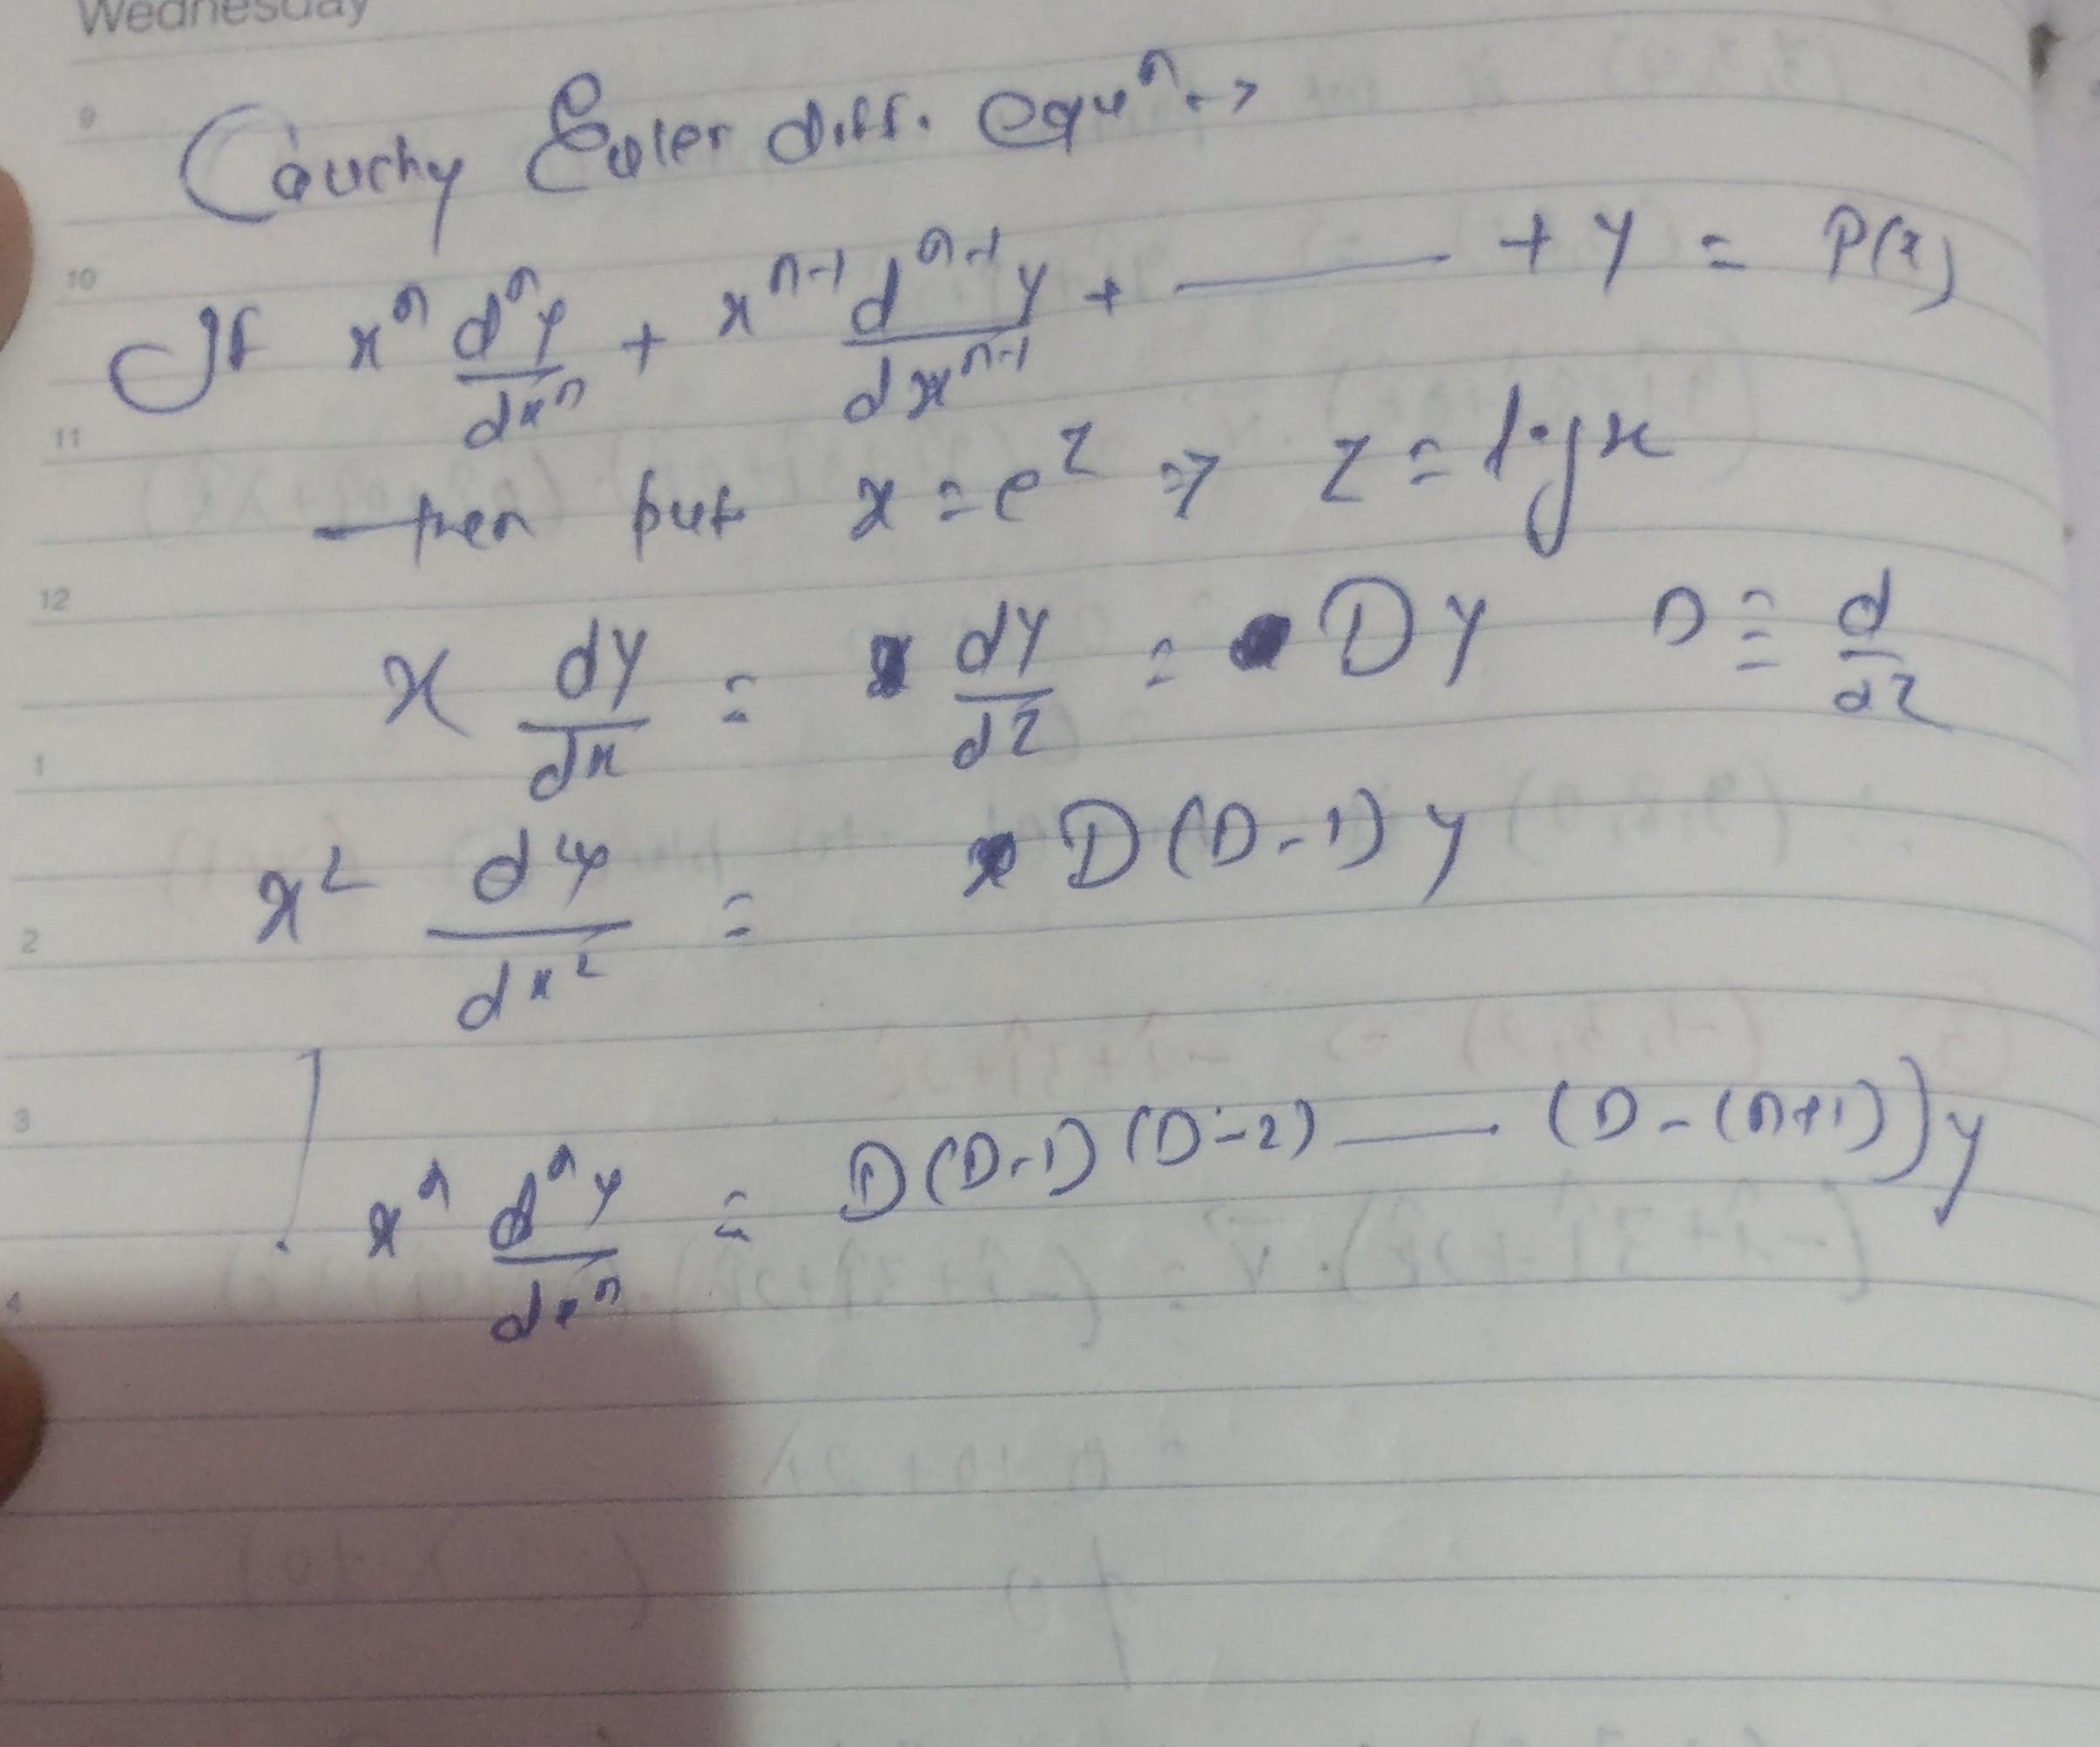 Wednesday
9
Cauchy Euler diff. equⁿ →
10
If xⁿ dⁿy/dxⁿ + xⁿ⁻¹ dⁿ⁻¹y/dxⁿ⁻¹ + —— + y = P(x)
11
then put x = e^z ⇒ z = log x
12
x dy/dx = dy/dz = Dy D ≡ d/dz
1
x² d²y/dx² = D(D-1)y
2
3
xⁿ dⁿy/dxⁿ = D(D-1)(D-2) —— (D-(n+1))y
4